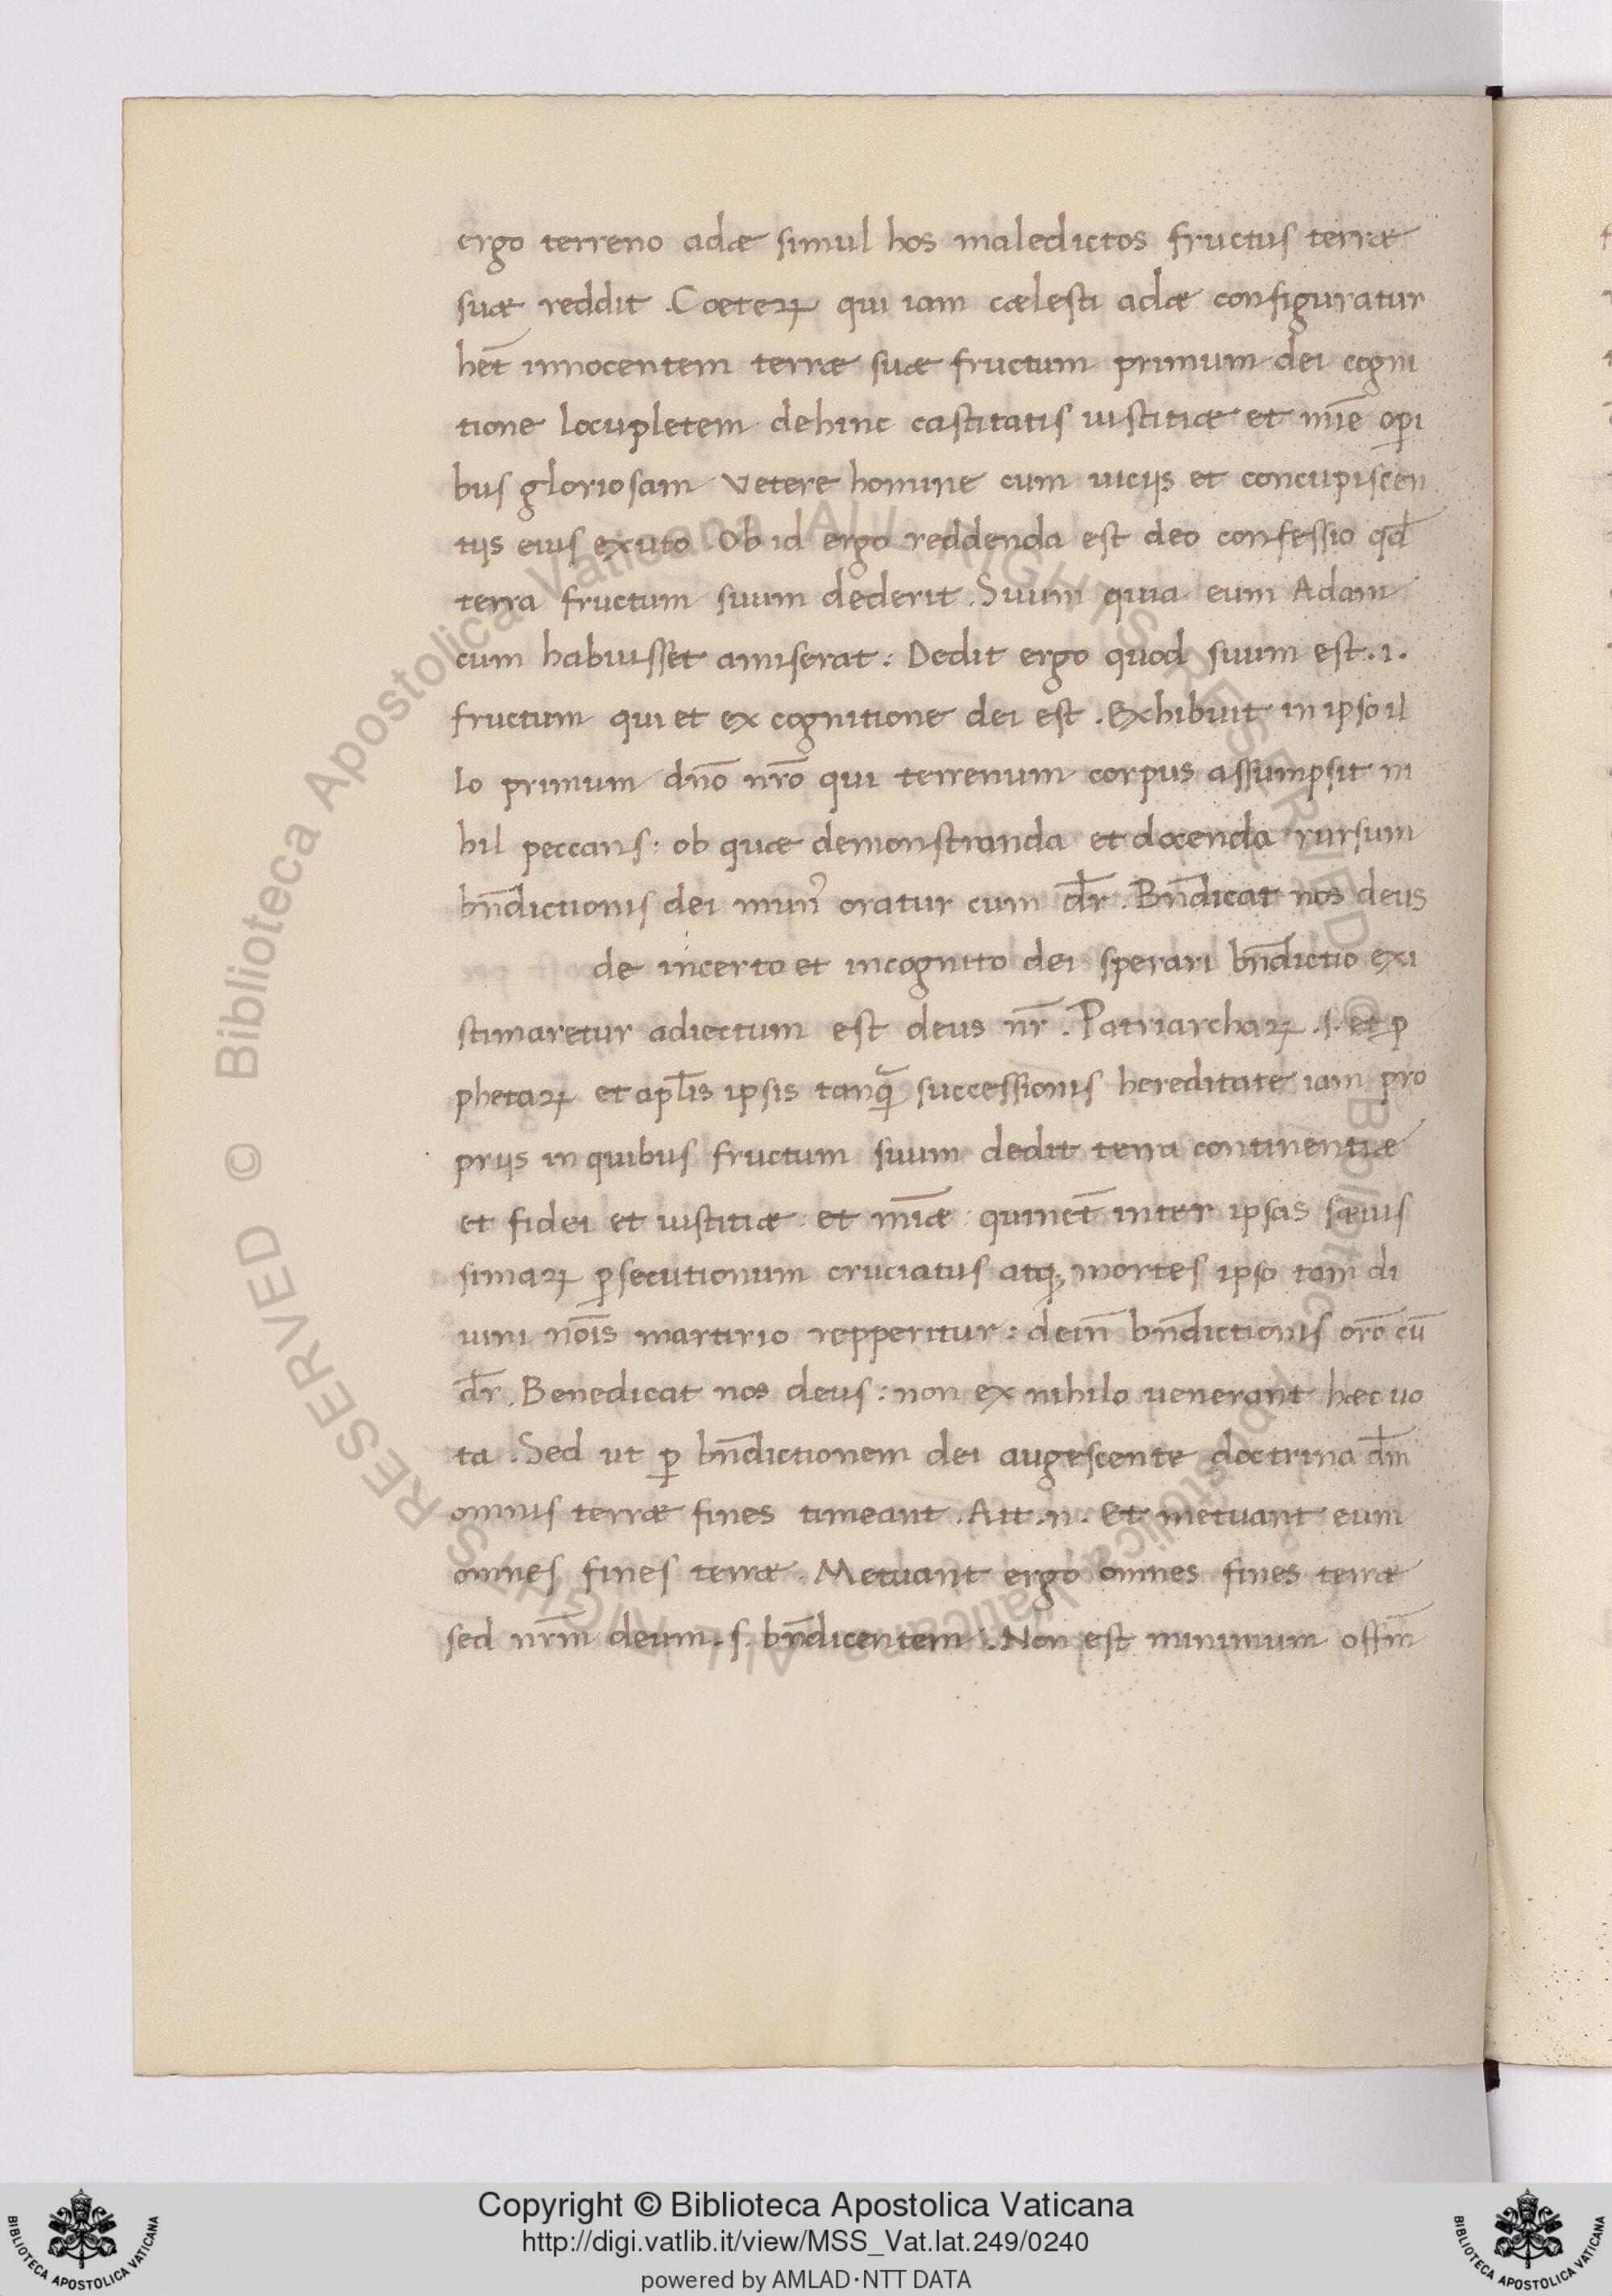 ergo terreno adæ simul hos maledictos fructus terræ
suæ reddit . Cœteꝝ qui iam cælesti adæ configuratur
hēt innocentem terræ suæ fructum primum dei cogni
tione locupletem dehinc castitatis iustitiæ et mīe oꝑi
bus gloriosam vetere homine cum uicijs et concupiscen
tijs eius exuto . Ob id ergo reddenda est deo confessio qd̄
terra fructum suum dederit . Suum quia eum Adam
cum habuisset amiserat : Dedit ergo quod suum est . i .
fructum qui et ex cognitione dei est . Exhibuit in ipso il
lo primum dn̄o nr̄o qui terrenum corpus assumpsit ni
hil peccans : ob quæ demonstranda et docenda rursum
bn̄dictionis dei mun̉ oratur cum dr̄ . Bn̄dicat nos deus
de incerto et incognito dei sperari bn̄dictio exi
stimaretur adiectum est deus nr̄ . Patriarchaꝝ . s . et ꝓ
phetaꝝ et apl̄is ipsis tanꝗ̄ successionis hereditate iam pro
prijs in quibus fructum suum dedit terra continentiæ
et fidei et iustitiæ et mīæ : quinet̄ inter ipsas sæuis
simaꝝ ꝑsecutionum cruciatus atqꝫ mortes ipso tam di
uini nōis martirio repperitur : dein̄ bn̄dictionis orō cū
dr̄ . Benedicat nos deus : non ex nihilo venerant hæc uo
ta . Sed ut ꝑ bn̄dictionem dei augescente doctrina dm̄
omnis terræ fines timeant . Ait . n . Et metuant eum
omnes fines terræ . Metuant ergo omnes fines terræ
sed nr̄m deum . s . bn̄dicentem . Non est minimum offm̄
Copyright © Biblioteca Apostolica Vaticana
http://digi.vatlib.it/view/MSS_Vat.lat.249/0240
powered by AMLAD·NTT DATA
BIBLIOTECA APOSTOLICA VATICANA
BIBLIOTECA APOSTOLICA VATICANA
© Biblioteca Apostolica Vaticana ALL RIGHTS RESERVED
© Biblioteca Apostolica Vaticana ALL RIGHTS RESERVED